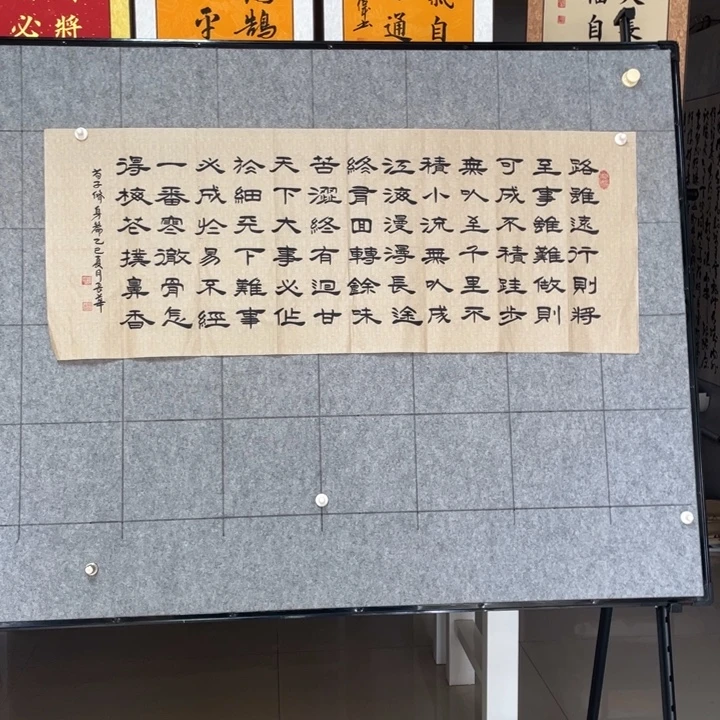 路雖遠行則將
至事雖難做則
可成不積跬步
無以至千里不
積小流無以成
江海漫漫長途
終有回轉餘味
苦澀終有迴甘
天下大事必作
於細天下難事
必成於易不經
一番寒徹骨怎
得梅花撲鼻香
荀子修身篇乙巳夏月
將
必
鵠
平
自
通
自